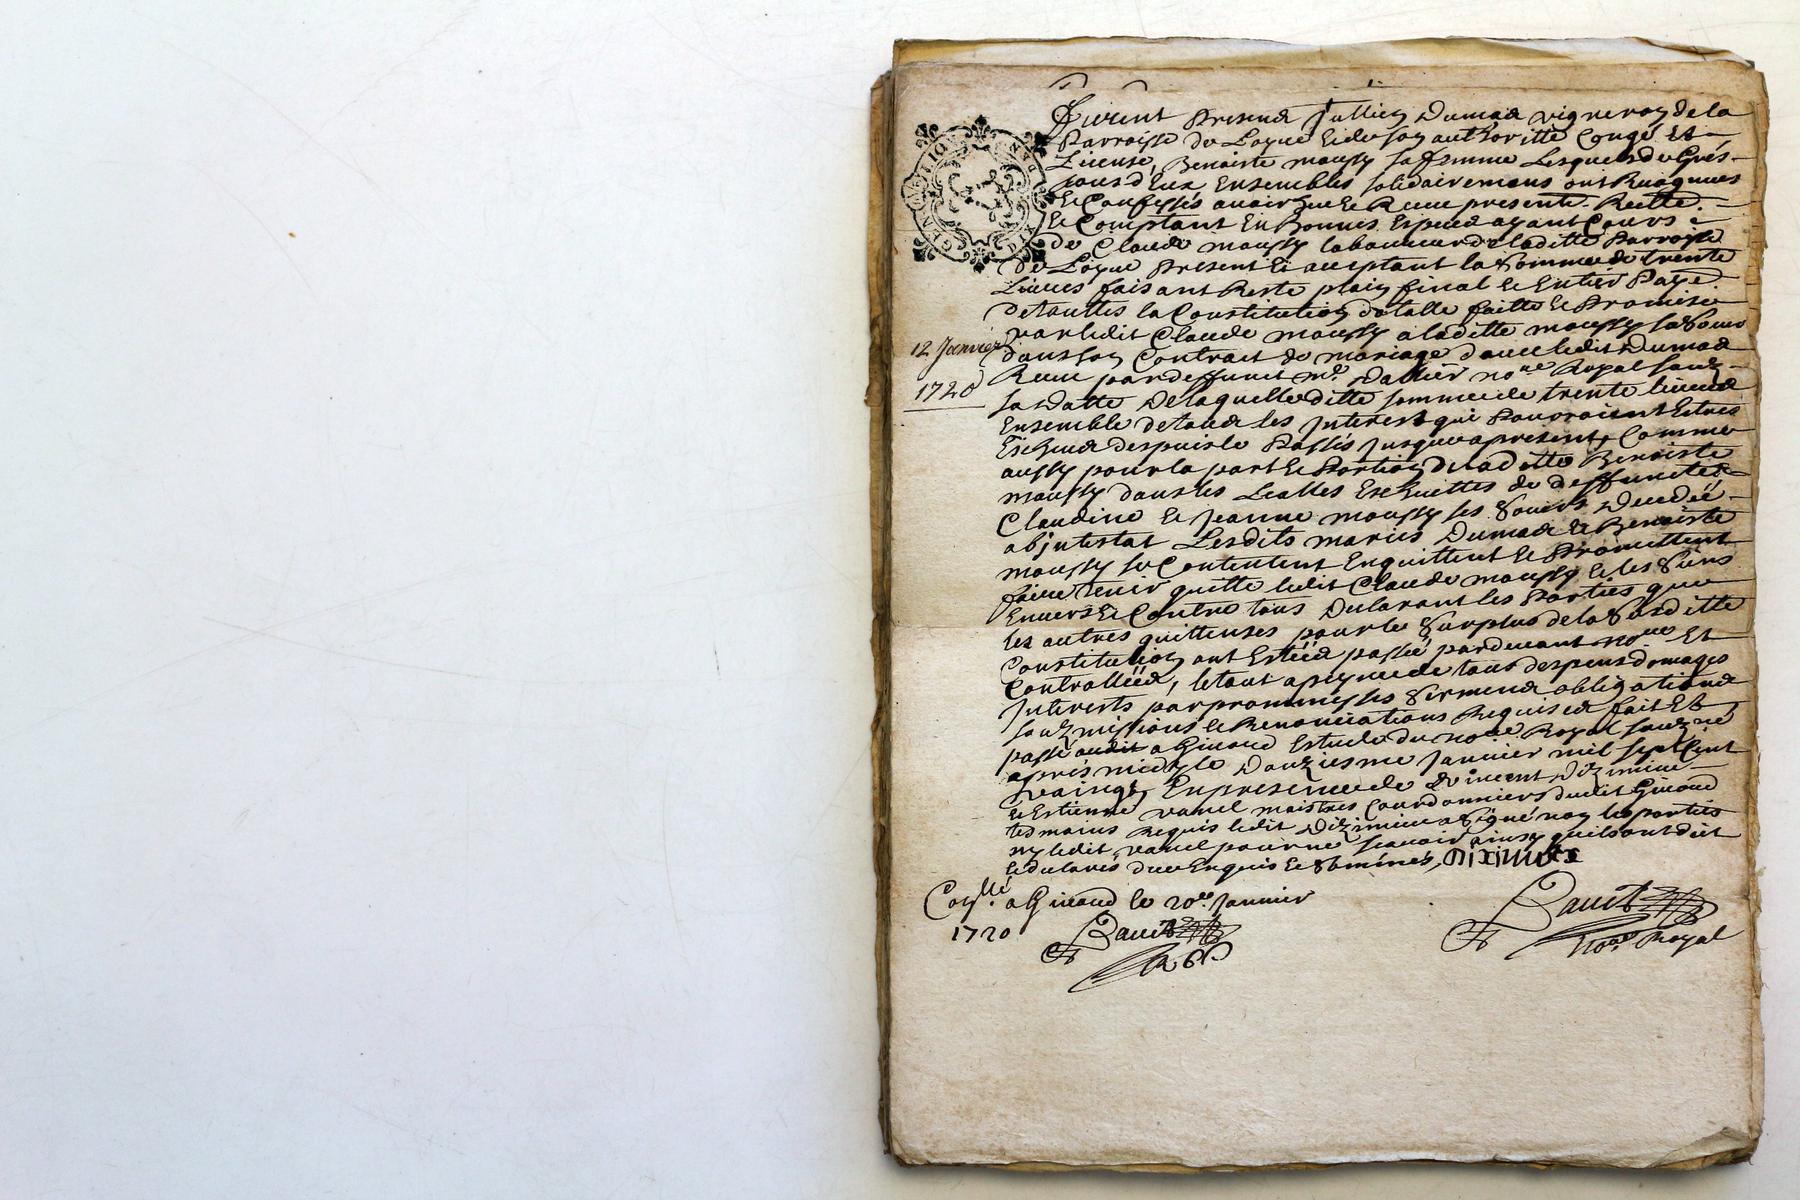 Furent Presend Jullien Dumas vigneron de la
Parroisse de Loyue Et de son authoritté Congé Et
License, Benoiste moussy sa femme Lesquels de Grés
Ensembles solidairemans ont Recognues
Et Confessés avoir heu Et Receu presente Reelle
Et Comptant En Bonnes Especes ayant Cours
de Claude moussy laboureur de laditte Parroisse
de Loyue Present Et acceptant la Somme de trente
Liures faisant Reste plain final Et Entier Paye
detouttes la Constitution dotalle faitte Et Promise
par ledit Claude moussy a laditte moussy sa Soeur
dans son Contrait de mariage d'auec ledit Dumas
Receu par deffunct me. Dallier nore Royal souz
sa Datte De laquelle ditte somme de trente Liures
Ensemble detoud les Interest qui Pouroient Estres
Escheud despuis le Passés Jusques apresent, Comme
aussy pour la part Et Portion de laditte Benoiste
moussy dans les Escheuttes de deffunctes
Claudine Et Jeanne moussy ses Soeurs Decedéé
abjntestat Lesdits mariés Dumas Et Benoiste
moussy se Contentent Enquittent Et Promettent
faire tenir quitte ledit Claude moussy Et les Siens
Enuers Et Contre tous Declarant les Parties que
les autres quittenses pour le Surplus de la Susditte
Constitution ont Estéés passéé pardeuant nore Et
Controlléés, le tout apeyne de tous despens domages
Interests par promesses Serment obligations
souzmissions Et Renonciations Requises fait Et
passé audit a Giuord Estude du nore Royal souzne
après midy le Douziesme Januier mil sept Cent
vaingt En presence de Vincent Diximieu
Et Estienne vanel maistres Courdonniers dudit Giuord
tesmoins Requis ledit Diximieu a Signé non les parties
ny ledit vanel pour ne scauoir ainsy quils ont dit
Et declarés dece Enquis Et Sommés, DiXiMiEX
12 Januier
1720
GEN DE LYON
DIX
Conllé. a Giuord le 20e. Januier
1720
nore Royal